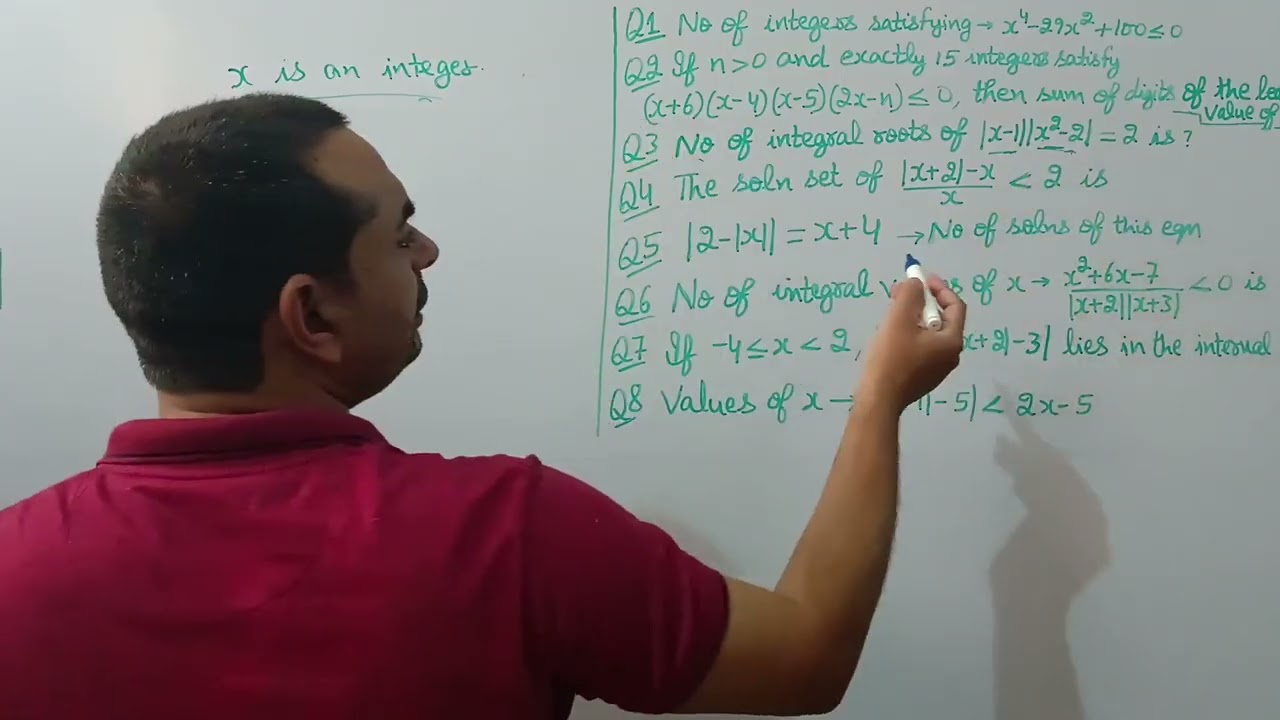 x is an integer.
Q1 No of integers satisfying → x⁴-29x²+100≤0
Q2 If n>0 and exactly 15 integers satisfy
(x+6)(x-4)(x-5)(2x-n)≤0, then sum of digits of the
value of
Q3 No of integral roots of |x-1||x²-2|=2 is?
Q4 The soln set of |x+2|-x/x < 2 is
Q5 |2-|x||=x+4 → No of solns of this eqn
Q6 No of integral of x → x²+6x-7/|x+2||x+3| <0 is
Q7 If -4≤x<2, x+2|-3| lies in the interval
Q8 Values of x → |-5|< 2x-5